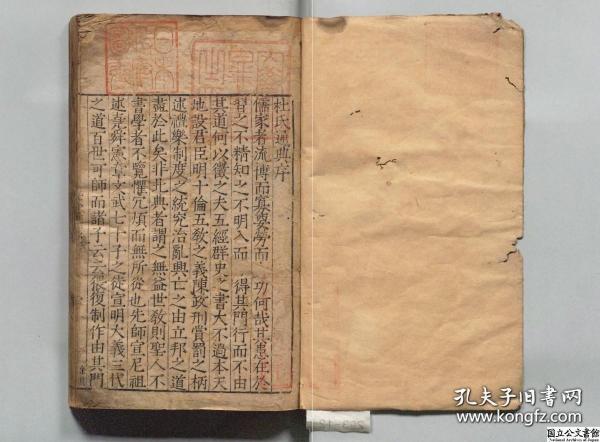 杜氏通典序
儒家者流博而寡要勞而 功何哉其患在於
習之不精知之不明入而 得其門行而不由
其道何以徵之夫五經群史之書大不過本天
地設君臣明十倫五敎之義陳政刑賞罰之柄
述禮樂制度之統究治亂興亡之由立邦之道
盡於此矣非此典者謂之無益世敎則聖人不
書學者不覽懼冗煩而無所從也先師宣尼祖
述堯舜憲章文武七十子之徒宣明大義三代
之道百世可師而諸子云云猥復制作由其門
日本
孔夫子旧书网
www.kongfz.com
国立公文書館
National Archives of Japan